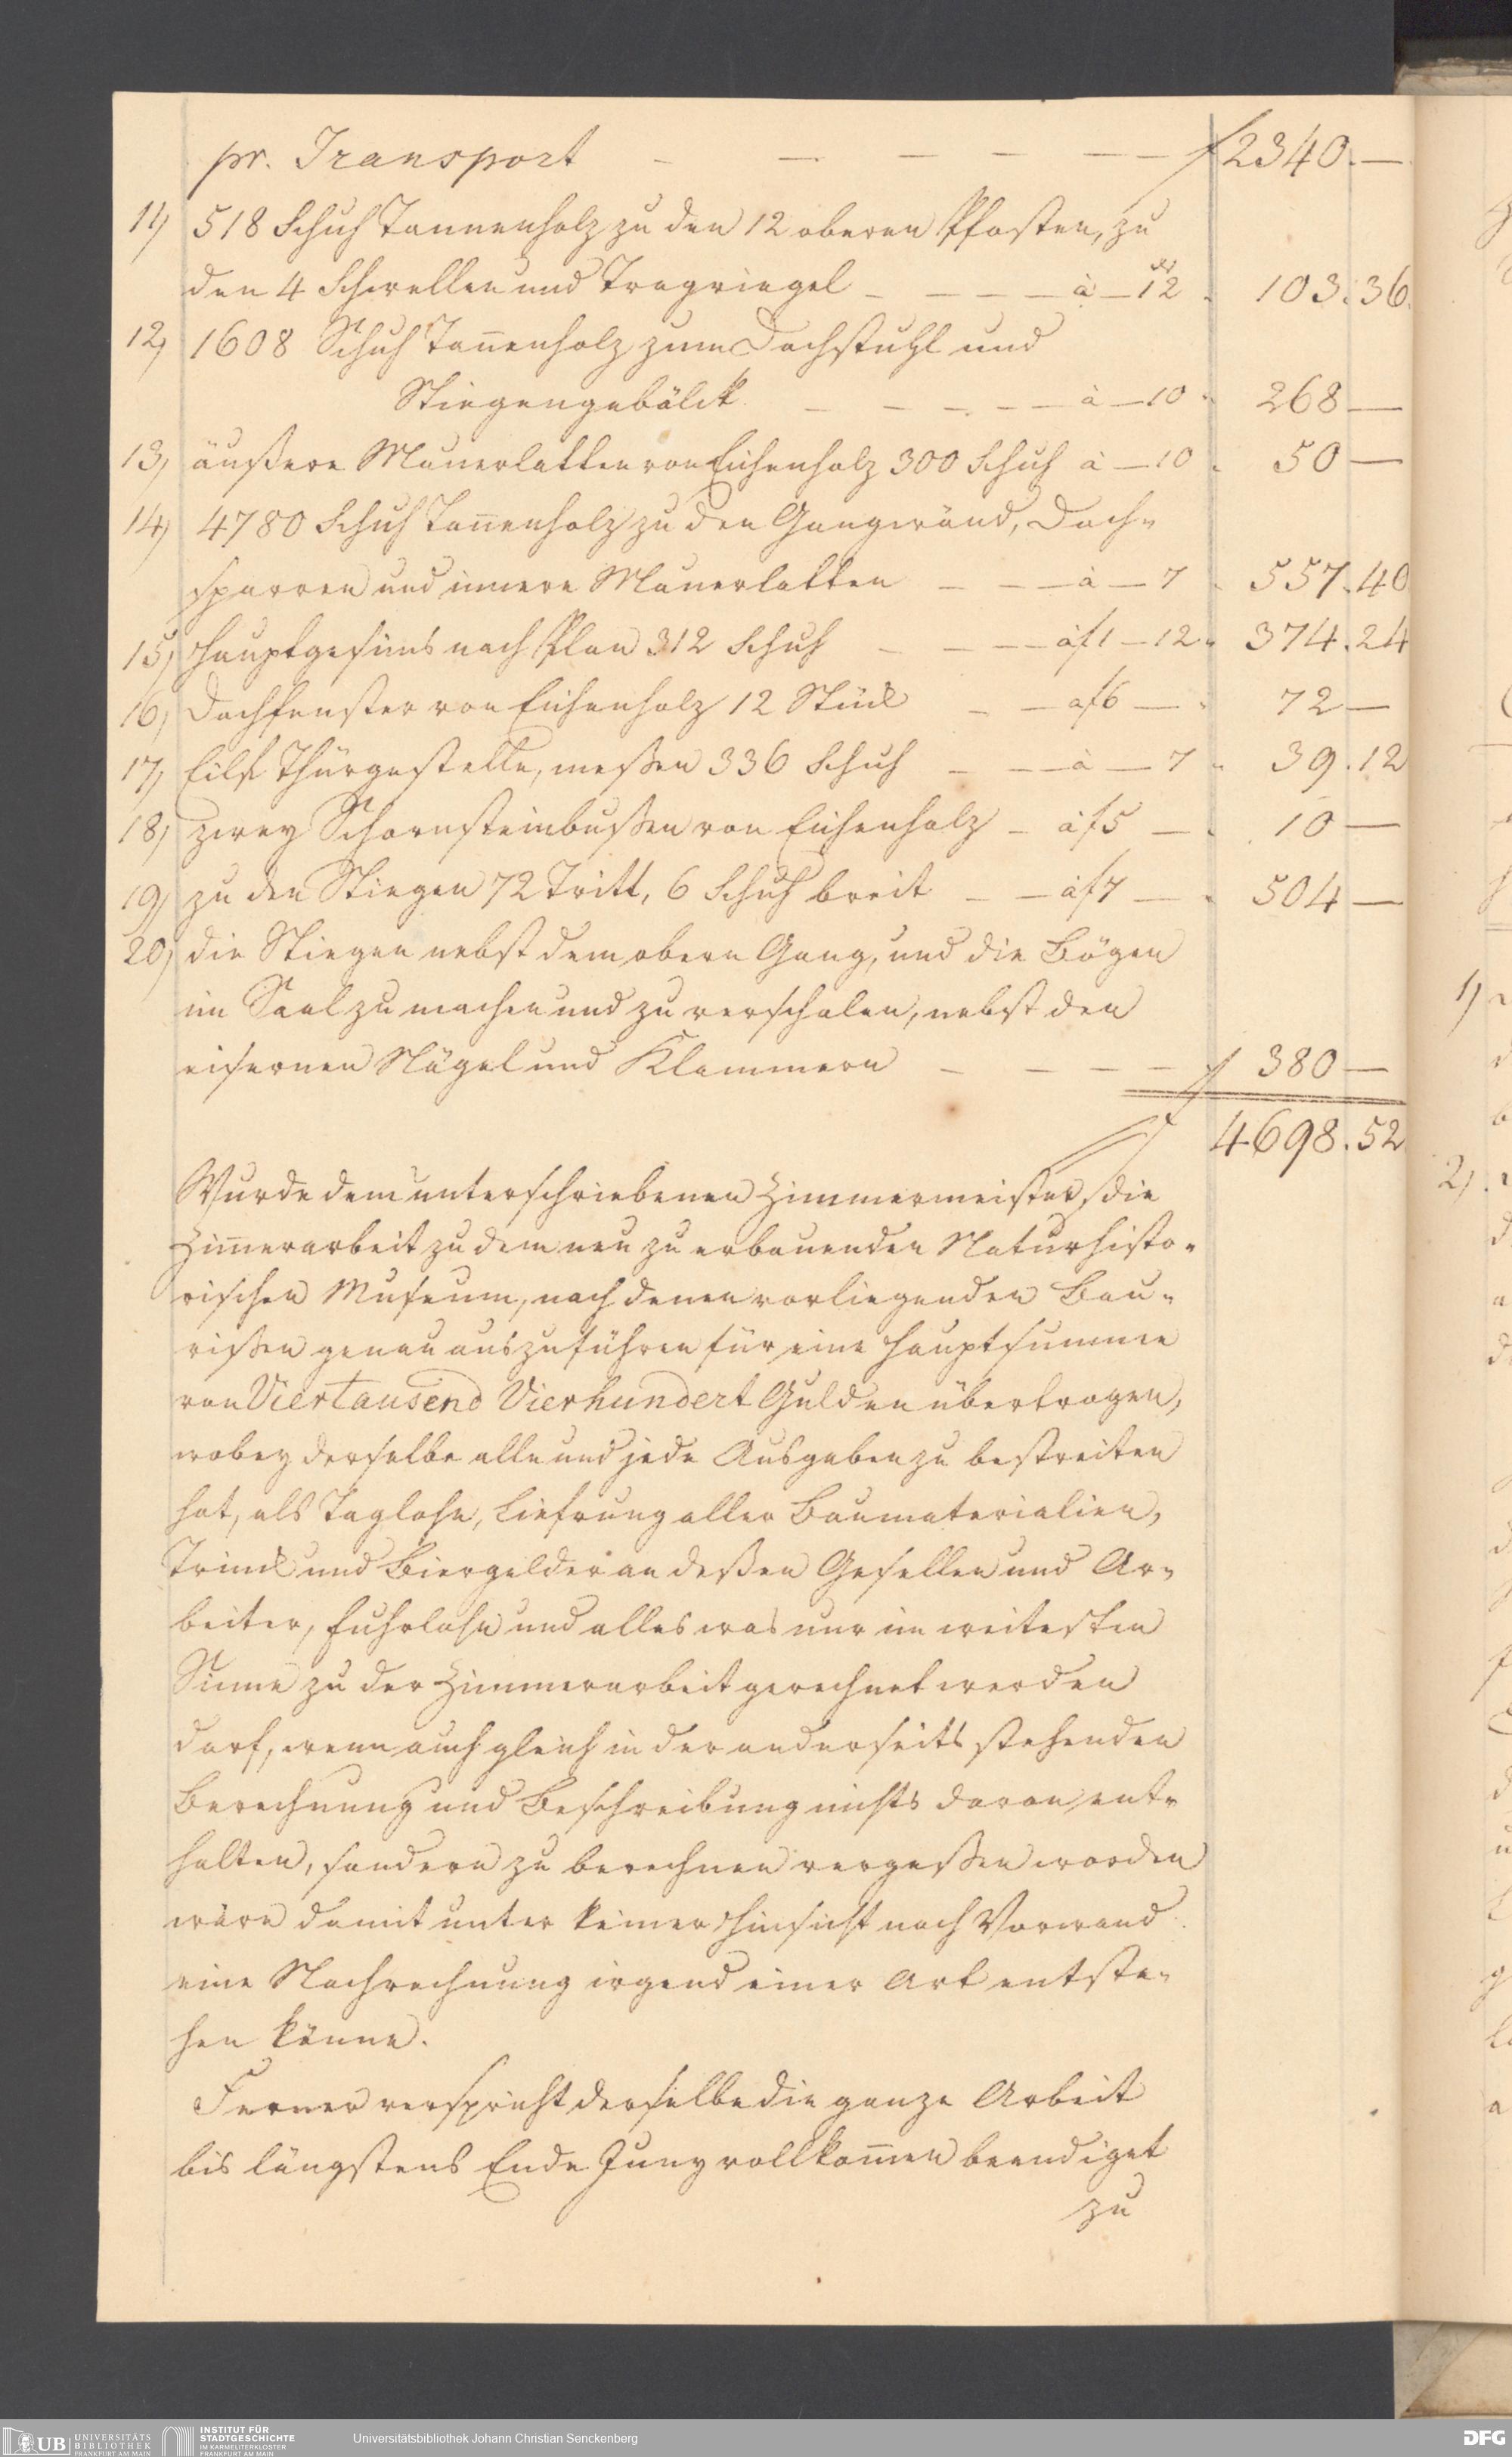 pr. Transport — — — — — — f 2340. —
11) 518 Schuh Tannenholz zu den 12 oberen Pfosten, zu
den 4 Schwellen und Tragriegel — — — — à — 12 xr „ 103. 36.
12) 1608 Schuh Tañenholz zum Dachstuhl und
Stiegengebälck. — — — — — à — 10 „ 268 —
13) äußere Mauerlatten von Eichenholz 300 Schuh à — 10 „ 50 —
14) 4780 Schuh Tañenholz zu den Gangwänd, Dach„
sparren und innere Mauerlatten — — — à — 7 „ 557. 40
15) Hauptgesims nach Plan 312 Schuh — — — à f 1 — 12 „ 374. 24
16) Dachfenster von Eichenholz 12 Stück — — a f 6 — „ 72 —
17) Eilf Thürgestelle, meßen 336 Schuh — — — à — 7 „ 39. 12
18) zwey Schornsteinbußen von Eichenholz — à f 5 — „ 10 —
19) zu den Stiegen 72 Tritt, 6 Schuh breit — — à f 7 — „ 504 —
20) die Stiegen nebst dem obern Gang, und die Bögen
im Saal zu machen und zu verschalen, nebst den
eisernen Nägel und Klammern — — — — f 380 —
f 4698. 52.
Wurde dem unterschriebenen Zimmermeister, die
Zim̃erarbeit zu dem neu zu erbauenden Naturhisto„
rischen Museum, nach denen vorliegenden Bau„
rißen genau auszuführen für eine Hauptsumme
von Viertausend Vierhundert Gulden übertragen,
wobey derselbe alle und jede Ausgaben zu bestreiten
hat, als Taglohn, Liefrung aller Baumaterialien,
Trinck und Biergelder an deßen Gesellen und Ar„
beiter, Fuhrlohn und alles was nur im weitesten
Sinne zu der Zimmerarbeit gerechnet werden
darf, wenn auch gleich in der anderseits stehenden
Berechnung und Beschreibung nichts davon ent„
halten, sondern zu berechnen vergeßen worden
wäre damit unter keiner Hinsicht noch Vorwand
eine Nachrechnung irgend einer Art entste„
hen könne.
Ferner verspricht derselbe die ganze Arbeit
bis längstens Ende Juny vollkom̃en beendiget
zu
1)
2)
UB UNIVERSITÄTS BIBLIOTHEK FRANKFURT AM MAIN
INSTITUT FÜR STADTGESCHICHTE IM KARMELITERKLOSTER FRANKFURT AM MAIN
Universitätsbibliothek Johann Christian Senckenberg
DFG